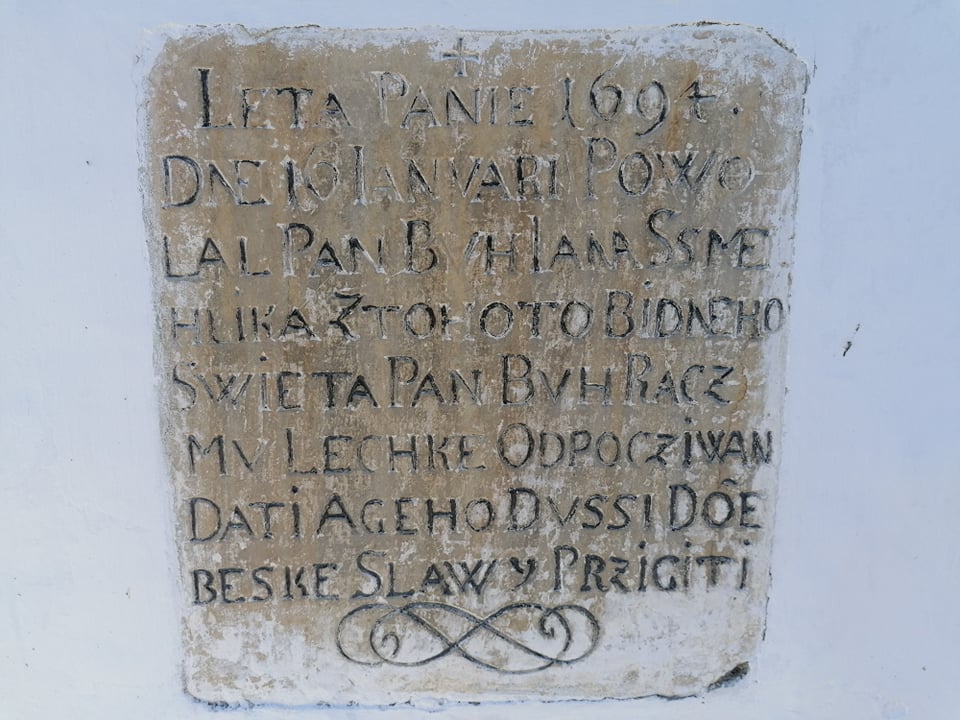 LETA PANIE 1694.
DNE 16 IANVARI POWO
LAL PAN BVH IANA SSME
HLIKA ZTOHOTO BIDNEHO
SWIETA PAN BVH RACZ
MV LECHKE ODPOCZIWAN
DATI AGEHO DVSSI DÕE
BESKE SLAWY PRZIGITI